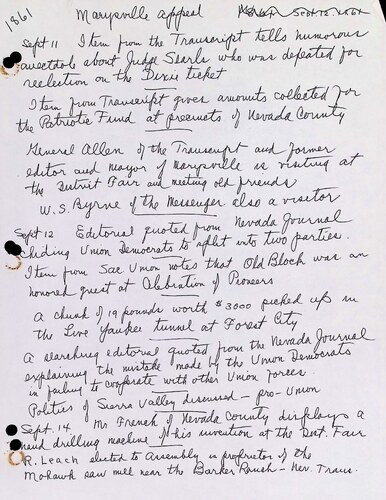 1861
Marysville Appeal
Sept 11 Item from the Transcript tells humorous
anectdote about Judge Searls who was defeated for
reelection on the Dixie ticket
Item from Transcript gives amounts collected for
the Patriotic Fund at precincts of Nevada County
General Allen of the Transcript and former
editor and mayor of Marysville is visiting at
the District Fair and meeting old friends
W.S. Byrne of the Messenger also a visitor
Sept 12 Editorial quoted from Nevada Journal
chiding Union Democrats to split into two parties.
Item from Sac Union notes that Old Block was an
honored guest at Celebration of Pioneers
A chunk of 19 pounds worth $3000 picked up in
the Live Yankee tunnel at Forest City
A searching editorial quoted from the Nevada Journal
explaining the mistake made by the Union Democrats
in failing to cooperate with other Union forces
Politics of Sierra Valley discussed - pro-Union
Sept. 14 Mr French of Nevada County displays a
drilling machine of his invention at the Dist. Fair
R. Leach elected to Assembly is proprietor of the
Mohawk saw mill near the Barker Ranch - Nev. Trans.